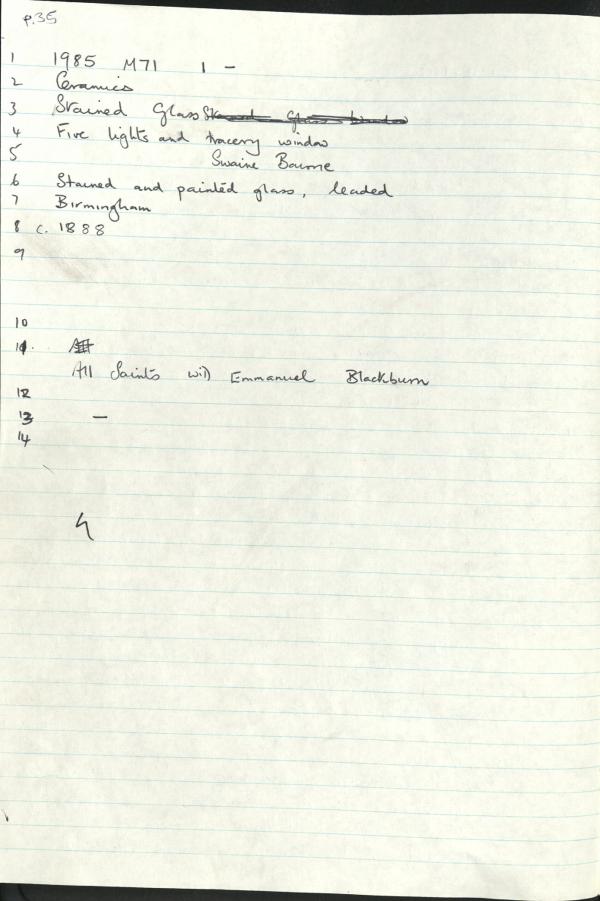 p.35
1 1985 M71 1 -
2 Ceramics
3 Stained Glass Stained glass window
4 Five lights and tracery window
5 Swaine Bourne
6 Stained and painted glass, leaded
7 Birmingham
8 c. 1888
9
10
11.
All Saints with Emmanuel Blackburn
12
13 -
14